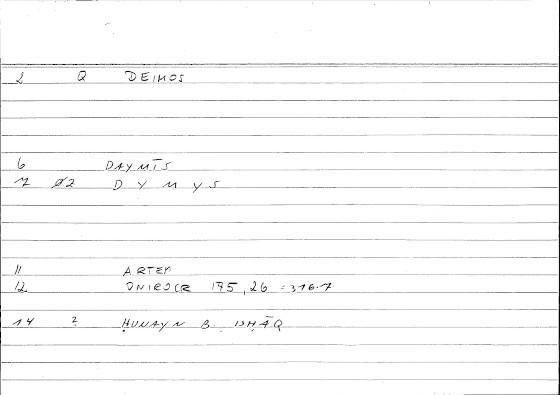 2 Q DEIMOS
6 DAYMĪS
7 Ø2 D Y M Y S
11 ARTEM
12 ONIROCR 175,26 = 316.7
14 2 ḤUNAYN B. ISḤĀQ